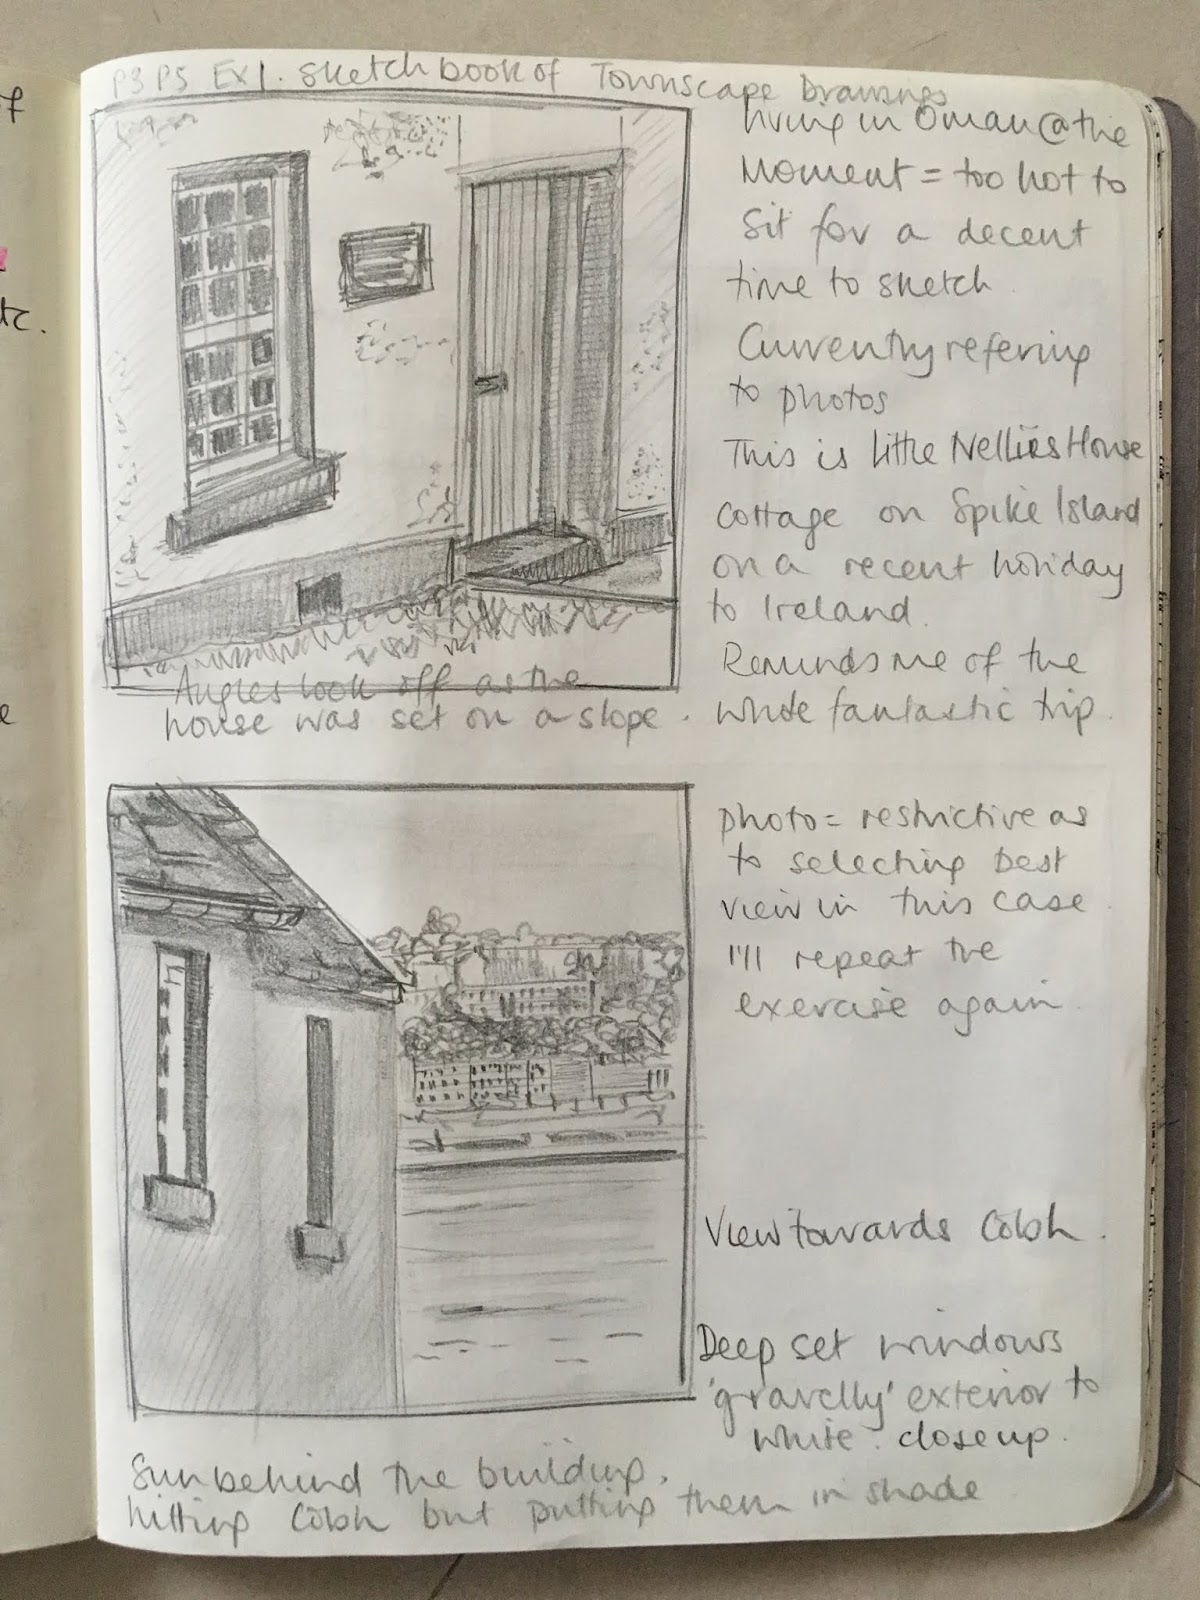 P3 P5 Ex1. Sketchbook of Townscape Drawings
living in Oman @ the
Moment = too hot to
sit for a decent
time to sketch.
Currently refering
to photos
This is Little Nellies House
cottage on Spike Island
on a recent holiday
to Ireland.
Reminds me of the
whole fantastic trip.
Angles look off as the
house was set on a slope.
photo = restrictive as
to selecting best
view in this case.
I'll repeat the
exercise again.
View towards Cobh.
Deep set windows
'gravelly' exterior to
white. close up.
Sun behind the building,
hitting Cobh but putting them in shade
of
tc.
e